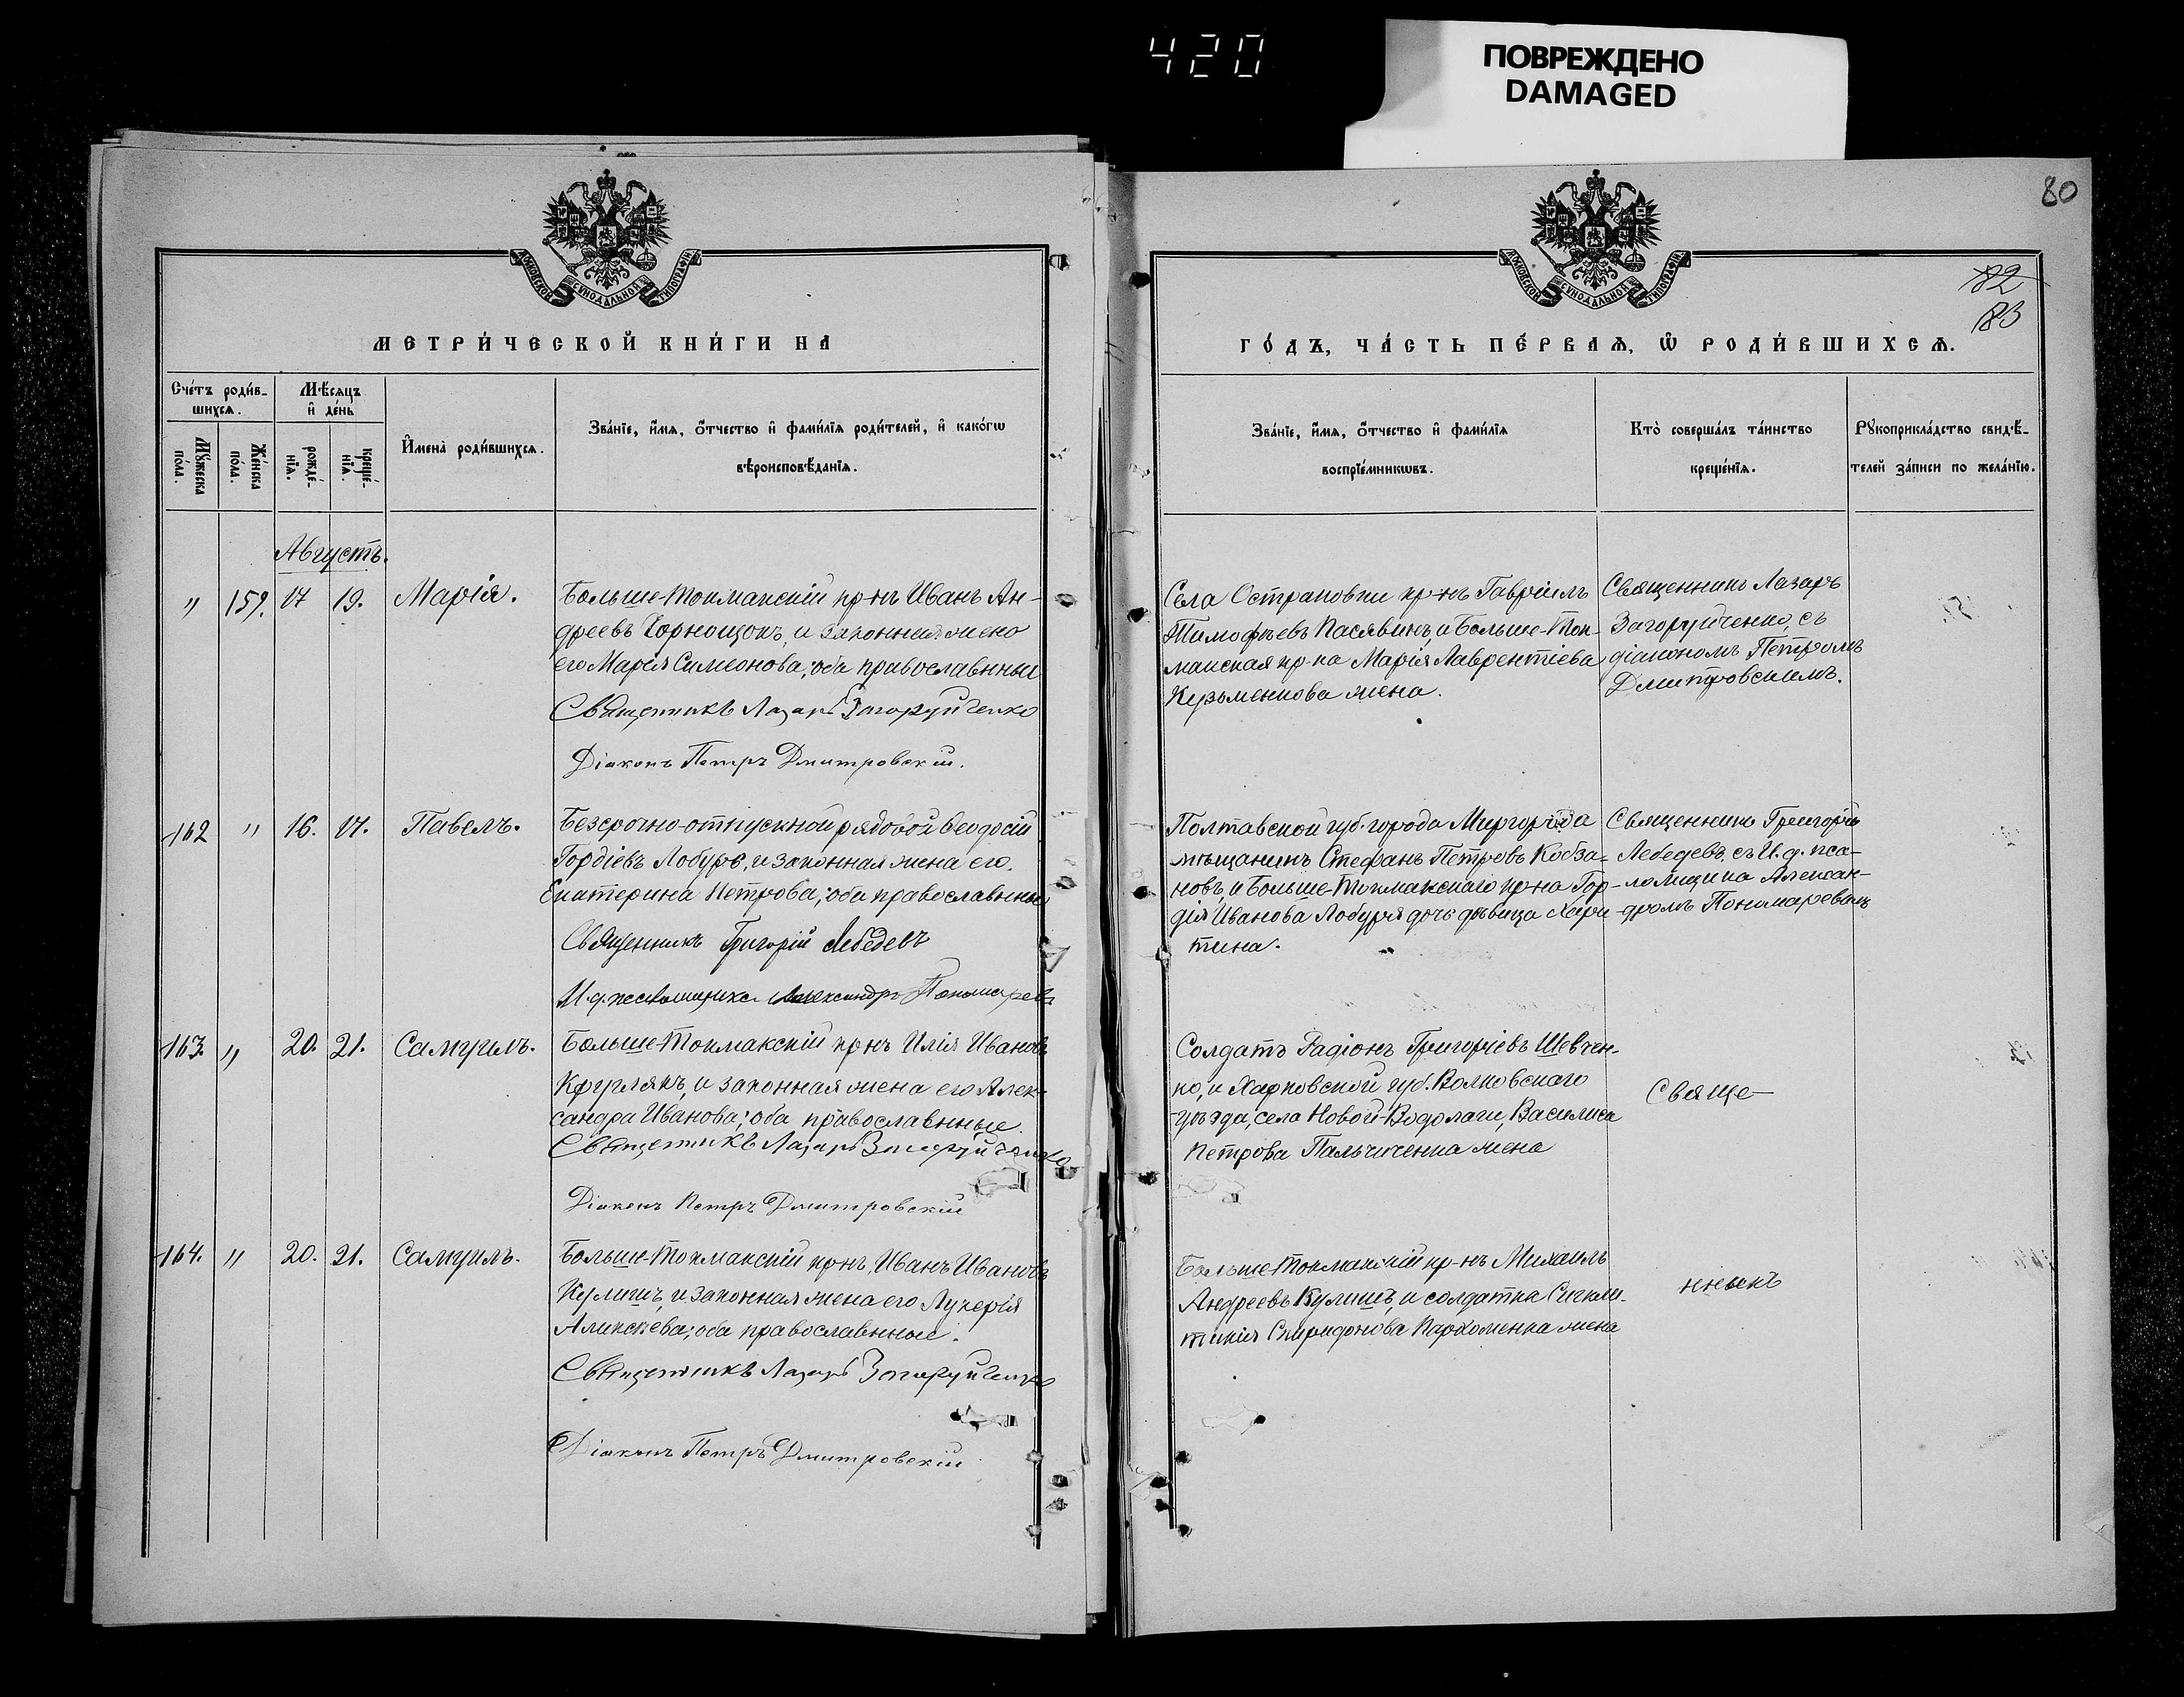 420
ПОВРЕЖДЕНО
DAMAGED
80
МОСКОВСКОЙ СѴНОДАЛЬНОЙ ТИПОГРАФІИ
МОСКОВСКОЙ СѴНОДАЛЬНОЙ ТИПОГРАФІИ
82
83
МЕТРИ́ЧЕСКОЙ КНИ́ГИ НА
ГО́ДЪ, ЧА́СТЬ ПЕ́РВАѦ, Ѡ РОДИ́ВШИХСѦ.
Сче́тъ роди́в-
шихсѧ.
Мѣ́сѧцъ
и де́нь
Мꙋ́жеска
по́ла.
Же́нска
по́ла.
рожде́-
нїѧ.
креще́-
нїѧ.
И҆мена̀ роди́вшихсѧ.
Зва́нїе, и҆́мѧ, ѻ҆́тчество и҆ фами́лїѧ роди́телей, и҆ како́гѡ
вѣроисповѣ́данїѧ.
Зва́нїе, и҆́мѧ, ѻ҆́тчество и҆ фами́лїѧ
воспрїе́мникѡвъ.
Кто̀ соверша́лъ та́инство
креще́нїѧ.
Рꙋкоприкла́дство свидѣ́-
телей за́писи по жела́нїю.
Августъ.
" 159. 17 19. Марія.
Больше-Токмакскій кр-нъ Иванъ Ан-
дреевъ Чорнощокъ, и законная жена
его Марія Симеонова; оба православные
Священникъ Лазарь Загоруйченко
Діаконъ Петръ Дмитровскій.
Села Остриковки кр-нъ Гавріилъ
Тимофѣевъ Касявинъ, и Больше-Ток-
макская кр-ка Марія Лаврентіева
Кузьменкова жена.
Священникъ Лазарь
Загоруйченко, съ
діакономъ Петромъ
Дмитровскимъ.
162 " 16. 17. Павелъ.
Безсрочно-отпускной рядовой Ѳеодосій
Гордіевъ Лобуръ, и законная жена его
Екатерина Петрова; оба православные
Священникъ Григорій Лебедевъ
И. д. псаломщика Александръ Пономаревъ
Полтавской губ. города Миргорода
мѣщанинъ Стефанъ Петровъ Кобза-
новъ, и Больше-Токмакскаго кр-на Гор-
дія Иванова Лобуря дочь дѣвица Хари-
тина.
Священникъ Григорій
Лебедевъ, съ И. д. пса-
ломщика Алексан-
дромъ Пономаревымъ
163. " 20. 21. Самуилъ.
Больше-Токмакскій кр-нъ Илія Ивановъ
Кругляхъ, и законная жена его Алек-
сандра Иванова; оба православные.
Священникъ Лазарь Загоруйченко
Діаконъ Петръ Дмитровскій
Солдатъ Радіонъ Григоріевъ Шевчен-
ко, и Харковской губ. Волковскаго
уѣзда, села Новой-Водолаги, Василиса
Петрова Пальчиченка жена
Свяще-
164. " 20. 21. Самуилъ.
Больше-Токмакскій кр-нъ, Иванъ Ивановъ
Кулишъ, и законная жена его Лукерія
Алексѣева; оба православные.
Священникъ Лазарь Загоруйченко
Діаконъ Петръ Дмитровскій
Больше-Токмакскій кр-нъ Михаилъ
Андреевъ Кулишъ, и солдатка Синкли-
тикія Спиридонова Пархоменка жена
нникъ